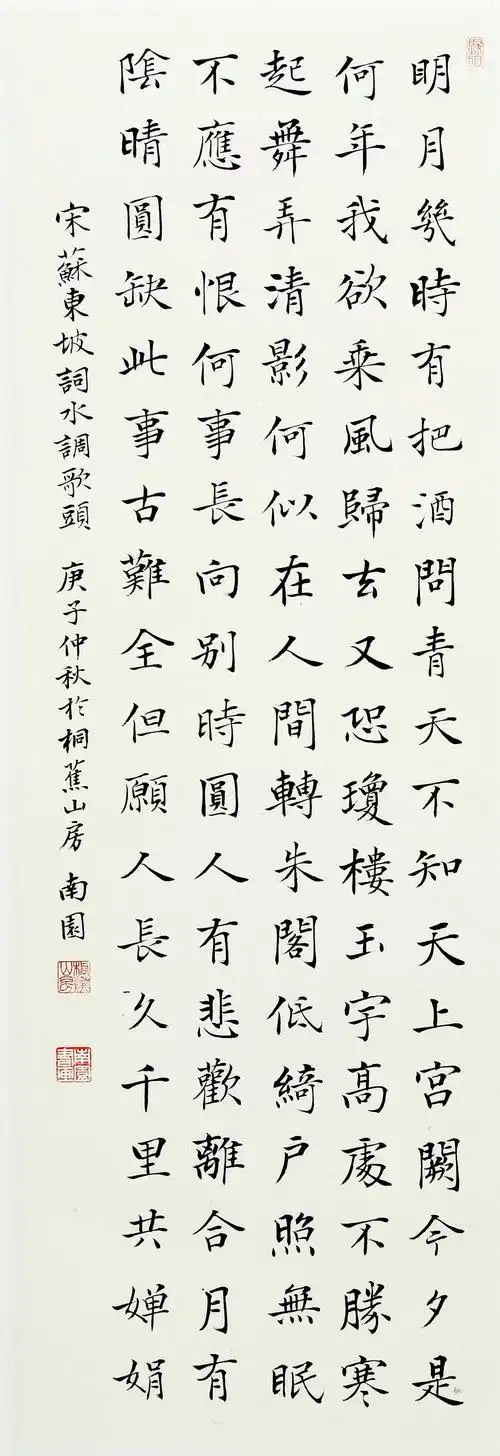 明月幾時有把酒問青天不知天上宮闕今夕是
何年我欲乘風歸去又恐瓊樓玉宇高處不勝寒
起舞弄清影何似在人間轉朱閣低綺户照無眠
不應有恨何事長向别時圓人有悲歡離合月有
陰晴圓缺此事古難全但願人長久千里共嬋娟
宋蘇東坡詞水調歌頭 庚子仲秋於桐蕉山房 南園
南園書畫